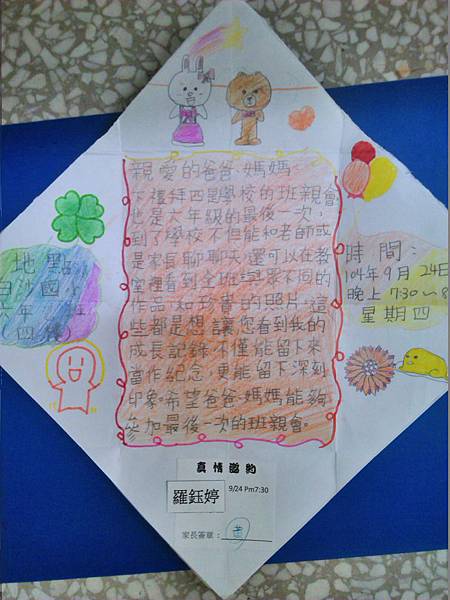 親愛的爸爸、媽媽
下禮拜四是學校的班親會
也是六年級的最後一次,
到了學校不但能和老師或
是家長聊聊天,還可以在教
室裡看到全班與眾不同的
作品,如珍貴的照片,這
些都是想讓您看到我的
成長記錄,不僅能留下來
當作紀念,更能留下深刻
印象。希望爸爸、媽媽能夠
參加最後一次的班親會。
地點:
白沙國小
六年
(四樓)
時間:
104年9月24日
晚上7:30~8
星期四
真情邀約
羅鈺婷
9/24 Pm7:30
家長簽章: